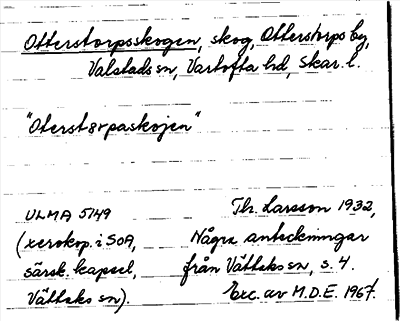 Otterstorpsskogen, skog, Otterstorps by,
Valstads sn, Vartofta hd, Skar. l.
"Oterstørpaskojen"
ULMA 5149 Th. Larsson 1932,
(xerokop. i SOA, Några anteckningar
särsk. kapsel, från Vättaks sn, s. 4.
Vättaks sn). Exc. av M.D.E. 1967.